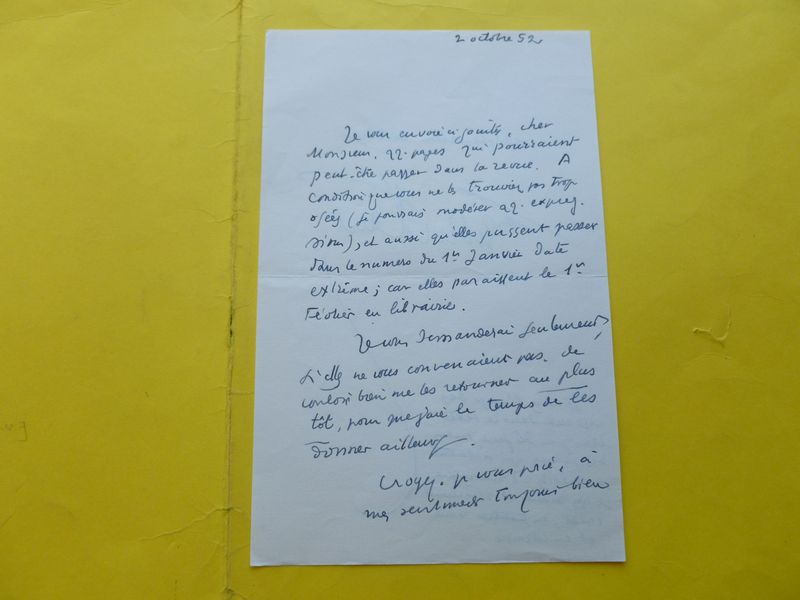 2 octobre 52
Je vous envoie ci-joints, cher
Monsieur, qq. pages qui pourraient
peut-être passer dans la revue. A
condition que vous ne les trouviez pas trop
osées (je pourrais modérer qq. expres-
sions), et aussi qu'elles puissent passer
dans le numero du 1er Janvier date
extrême ; car elles paraissent le 1er
Février en librairie.
Je vous demanderai seulement,
si elles ne vous convenaient pas de
vouloir bien me les retourner au plus
tôt, pour que j'aie le temps de les
donner ailleurs.
Croyez, je vous prie, à
mes sentiments toujours bien